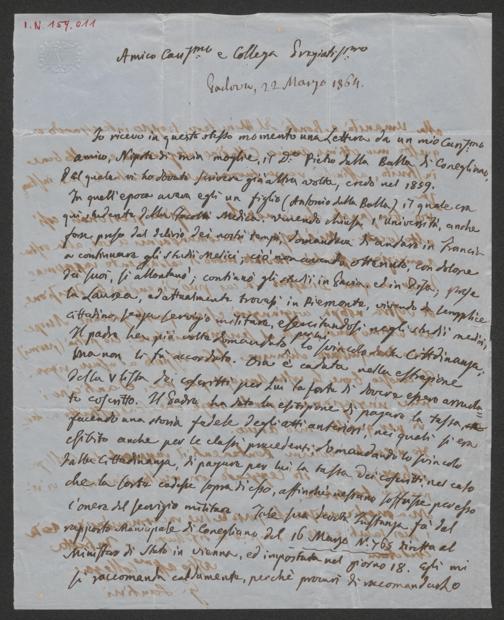 I.N. 154.011
Amico Car.mo e Collega Pregiatiss.mo
Padova, 22 Marzo 1864.
Io ricevo in questo stesso momento una lettera da un mio Car.mo
amico, Nipote di mia moglie, il D.r Pietro dalla Balla di Conegliano,
Pel quale vi ho dovuto scrivere già altra volta, credo nel 1859.
In quell'epoca aveva egli un figlio (Antonio dalla Balla) il quale era
qui studente della facoltà Medica. venendo chiusa l'Università, anche
forse preso dal delirio dei nostri tempi, domandava di andare in Francia
a continuare gli studi Medici; ciò non avendo ottenuto, con dolore
dei suoi, si allontanò; continuò gli studi in Pavia, ed in Pisa; prese
la Laurea, ed attualmente trovasi in Piemonte, vivendo da semplice
Cittadino, senza servigio militare, esercitandosi negli studi medici.
Il padre ha più volte domandato lo svincolo dalla Cittadinanza,
ma non li fu accordato. Ora è caduta nella estrazione
della lista dei coscritti per lui la sorte di dovere essere
coscritto. Il Padre ha fatto la esibizione di pagare la tassa,
facendo una storia fedele degli atti anteriori nei quali si era
esibito anche per le classi precedenti, domandando lo svincolo
dalla Cittadinanza, di pagare per lui la tassa dei coscritti nel caso
che la sorte cadesse sopra di esso, affinchè nessuno soffrisse per esso
l'onere del servizio militare. Tale sua devota Instanza fu dal
rapporto Municipale di Conegliano del 16 Marzo N. 765 diretta al
Ministro di Stato in Vienna, ed impostata nel giorno 18. Egli mi
si raccomanda caldamente, perchè procuri di raccomandarlo